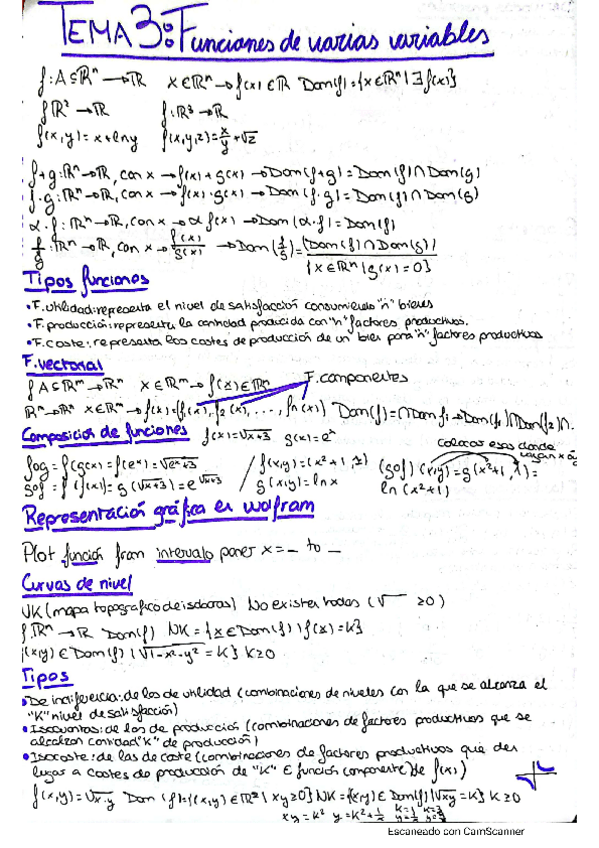 TEMA 3: Funciones de varias variables
f: A⊆ℝⁿ → ℝ   x∈ℝⁿ → f(x)∈ℝ   Dom(f)={x∈ℝⁿ | ∃ f(x)}
f ℝ² → ℝ   f: ℝ³ → ℝ
f(x,y)=x+lny   f(x,y,z)=x/y+√z
f+g: ℝⁿ→ℝ, con x → f(x)+g(x) → Dom(f+g)=Dom(f)∩Dom(g)
f·g: ℝⁿ→ℝ, con x → f(x)·g(x) → Dom(f·g)=Dom(f)∩Dom(g)
α·f: ℝⁿ→ℝ, con x → α f(x) → Dom(α·f)=Dom(f)
f/g: ℝⁿ→ℝ, con x → f(x)/g(x) → Dom(f/g)=(Dom(f)∩Dom(g))/{x∈ℝⁿ | g(x)=0}
Tipos funciones
• F. utilidad: representa el nivel de satisfacción consumiendo "n" bienes
• F. producción: representa la cantidad producida con "n" factores productivos.
• F. coste: representa los costes de producción de un bien para "n" factores productivos
F. vectorial
f A⊆ℝᵐ → ℝⁿ   x∈ℝᵐ → f(x)∈ℝⁿ   F. componentes
ℝᵐ→ℝⁿ   x∈ℝᵐ → f(x)=(f₁(x), f₂(x), ..., fn(x))   Dom(f)=∩Dom fᵢ → Dom(f₁)∩Dom(f₂)∩.
Composición de funciones   f(x)=√x+3   g(x)=eˣ
colocar esas donde
fog = f(g(x))=f(eˣ)=√eˣ+3   / f(x,y)=(x²+1, 1)   (gof)(x,y)=g(x²+1, 1)=
gof = f(f(x))=g(√x+3)=e^√x+3   / g(x,y)=lnx   ln(x²+1)
Representación gráfica en wolfram
Plot función from intervalo poner x=_ to _
Curvas de nivel
NK (mapa topográfico de isobaras) No existen todas (√ ≥0)
f: ℝⁿ → ℝ   Dom(f)   NK={x∈Dom(f) | f(x)=K}
(x,y)∈Dom(f) | √1-x²-y²=K} K≥0
Tipos
• De indiferencia: de los de utilidad (combinaciones de niveles con la que se alcanza el
"K" nivel de satisfacción)
• Isocuantas: de los de producción (combinaciones de factores productivos que se
alcalzan cantidad "K" de producción)
• Isocoste: de las de coste (combinaciones de factores productivos que den
lugar a costes de producción de "K" ∈ función componente) de f(x)
f(x,y)=√x·y   Dom(f)={(x,y)∈ℝ² | xy≥0}   NK={(x,y)∈Dom(f) | √xy=K} K≥0
xy=k²
Escaneado con CamScanner